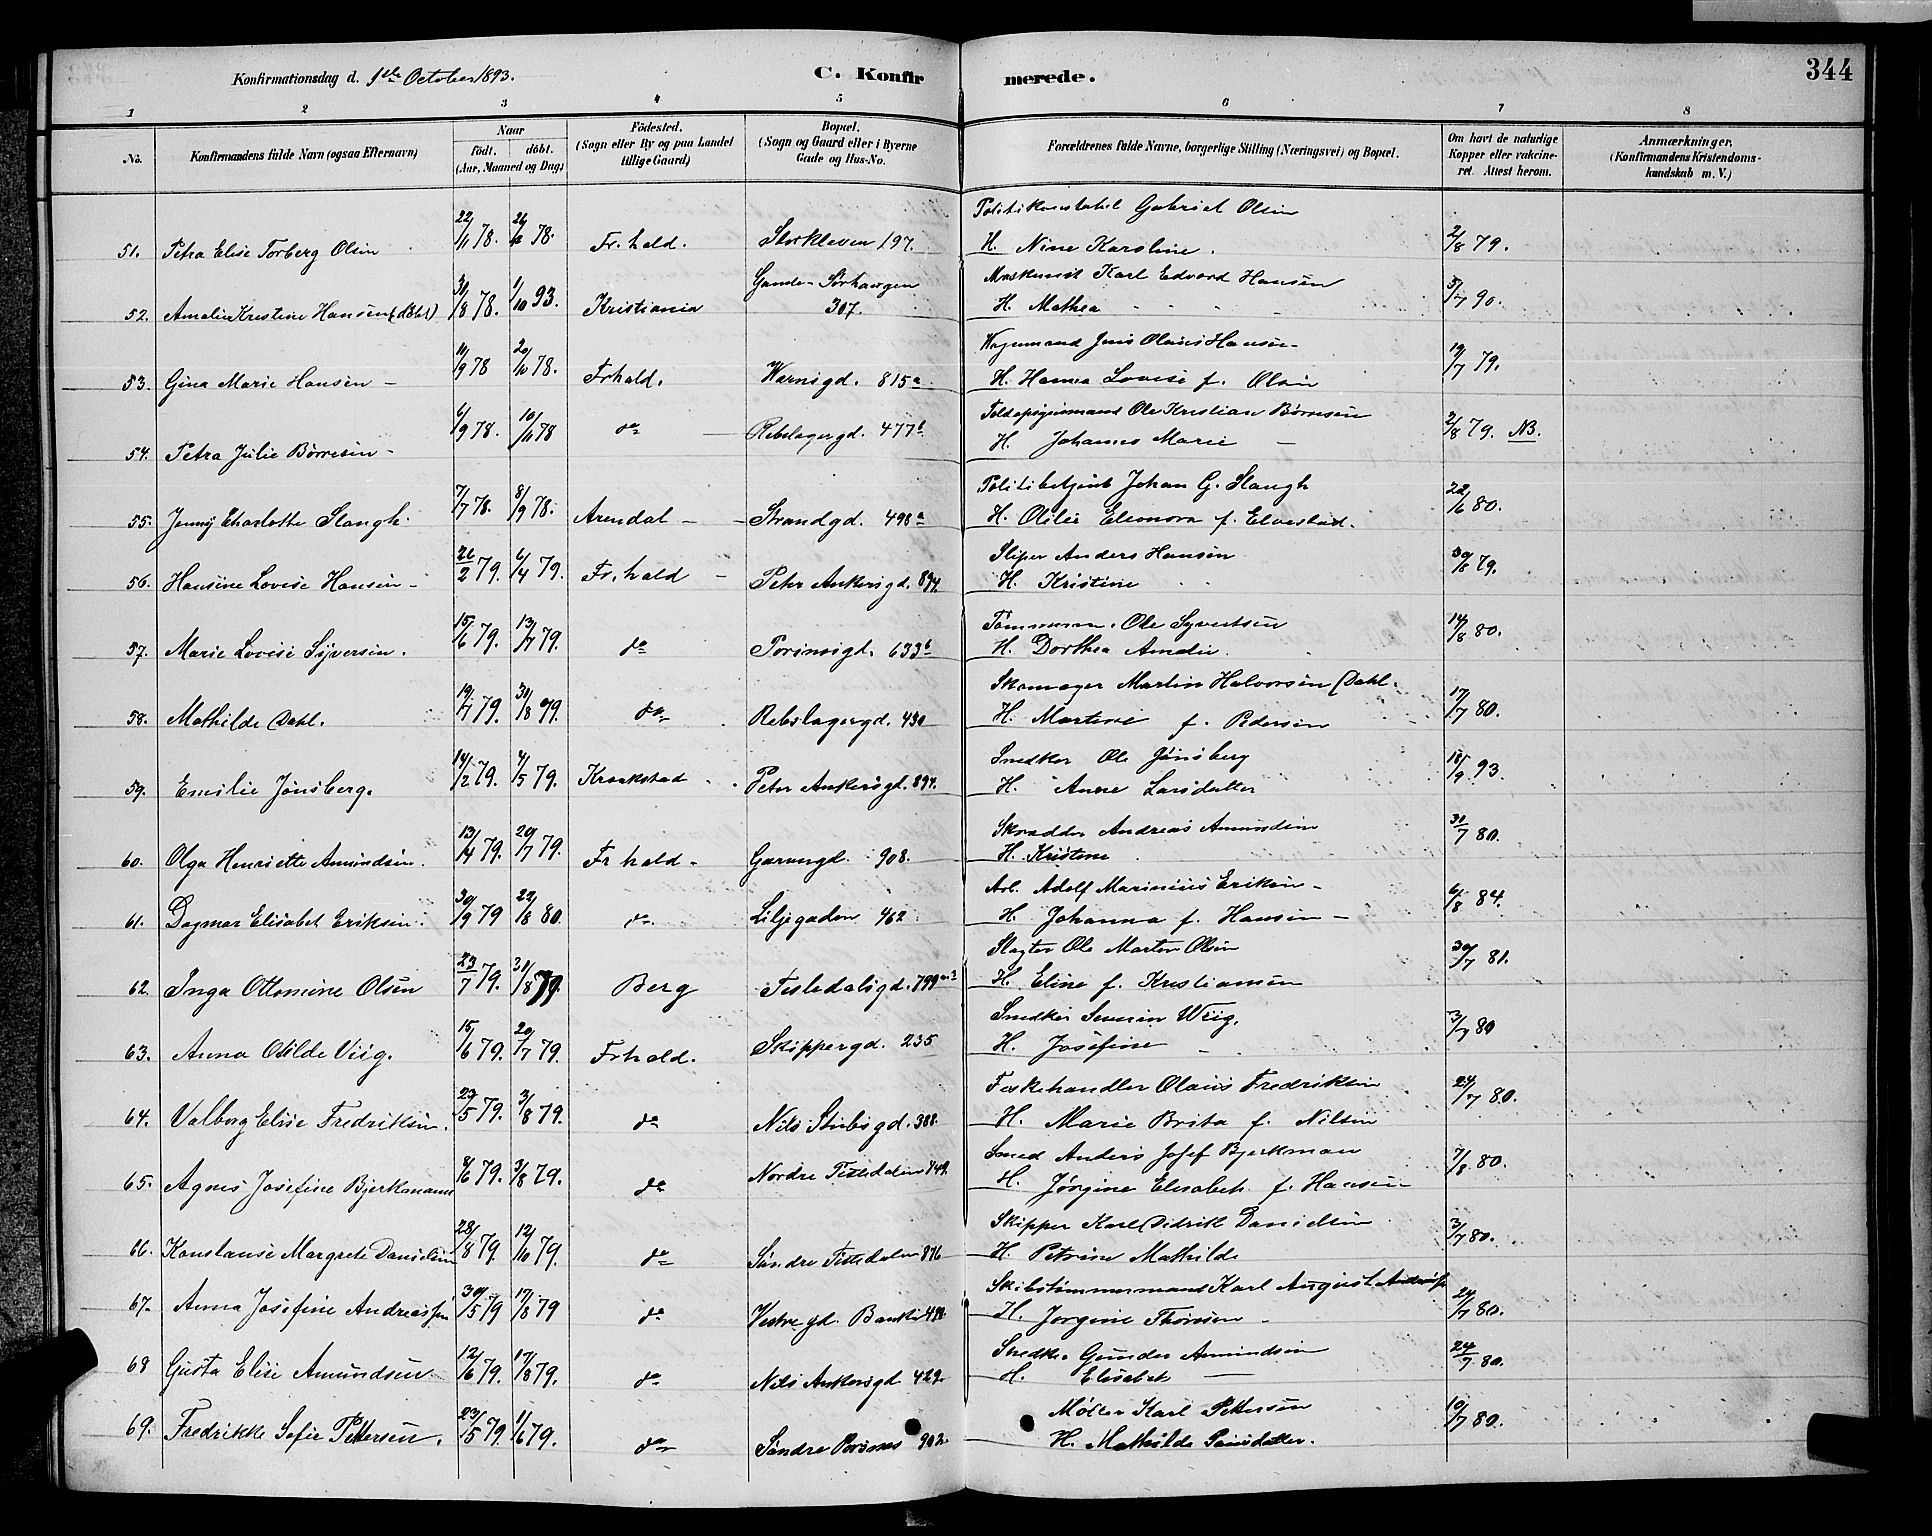 Konfirmationsdag d. 1ste October 1893. C. Konfirmerede. 344
1 2 3 4 5 6 7 8
No. Konfirmandens fulde Navn (ogsaa Efternavn) Naar Födt. döbt. (Aar, Maaned og Dag) Födested. (Sogn eller By og paa Landet tillige Gaard) Bopæl. (Sogn og Gaard eller i Byerne Gade og Hus-No. Forældrenes fulde Navne, borgerlige Stilling (Næringsvei) og Bopæl. Om havt de naturlige Kopper eller vakcineret. Attest herom. Anmærkninger. (Konfirmandens Kristendomskundskab m. V.)
51. Petra Elise Torberg Olsen 22/11 78. 26/12 78. Fr.hald. Storkleven 197. Politikonstabel Gabriel Olsen
H. Nine Karoline. 2/8 79.
52. Amalie Kristine Hansen (döbt) 31/8 78. 1/10 93. Kristiania 307. Maskinist Karl Edvard Hansen
H. Mathea 5/7 90.
53. Gina Marie Hansen 10/9 78 20/10 78. Frhald. Warnsgd. 815a Vognmand Jens Olaus Hansen
H. Hanna Lovise f. Olsen 19/7 79.
54. Petra Julie Börresen 6/9 78. 10/11 78 do Rebslagergd. 477b Toldopsynsmand Ole Kristian Börresen
H. Johanne Marie 2/8 79. NB.
55. Jenny Charlotte Slangh. 7/7 78. 8/9 78. Arendal Strandgd. 498a Politibetjent Johan G. Slangh
H. Otilie Eleonora f. Elvestad. 22/6 80.
56. Hansine Lovise Hansen 26/2 79. 6/4 79. Fr.hald Peter Ankersgd. 894. Sliper Anders Hansen
H. Kristine 30/8 79.
57. Marie Lovise Syversen. 15/6 79. 13/7 79. do 633b Tömmerm. Ole Syvertsen
H. Dorthea Amalie. 14/8 80.
58. Mathilde Dahl. 19/7 79. 31/8 79. do Rebslagergd. 430 Skomager Martin Halvorsen Dahl.
H. Martine f. Pedersen 17/7 80.
59. Emilie Jönsberg. 14/2 79. 4/5 79. Kraakstad Peter Ankersgd. 894. Snedker Ole Jönsberg
H. Anne Larsdatter 18/9 93.
60. Olga Henriette Amundsen. 13/4 79. 20/7 79. Fr.hald 908. Skrædder Andreas Amundsen
H. Kristine 31/7 80.
61. Dagmar Elisabet Eriksen. 30/9 79 22/8 80. do Liljegaden 462 Arb. Adolf Marinius Eriksen
H. Johanna f. Hansen 6/8 84.
62. Inga Ottomine Olsen 23/7 79. 31/8 79. Berg Tistedalsgd. 799 Slagter Ole Martin Olsen
H. Eline f. Kristiansen 30/7 81.
63. Anna Otilde Viig. 15/6 79. 20/7 79. Frhald. Skippergd. 235 Snedker Severin Wiig.
H. Josefine 3/7 80
64. Valborg Elise Fredriksen. 23/5 79. 3/8 79. do Nils Stubsgd. 388. Fiskehandler Olaus Fredriksen
H. Marie Brita f. Nilsen 24/7 80.
65. Agnes Josefine Bjerkmann 8/6 79. 3/8 79. do Nordre Tistedalen 849. Smed Anders Josef Bjerkman
H. Jörgine Elisabeth f. Hansen 7/8 80.
66. Konstanse Margrete Danielsen 28/8 79. 12/10 79. do Söndre Tistedalen 876 Skipper Karl Didrik Danielsen
H. Petrine Mathilde 3/7 80.
67. Anna Josefine Andreassen 30/5 79 17/8 79 do Vestregd. Banken Skibstömmermand Karl August
H. Jorgine Thorsen 24/7 80.
68 Gusta Elise Amundsen 12/6 79. 17/8 79. do Nils Ankersgd 429. Snedker Gunder Amundsen
H. Elisabet 24/7 80.
69. Fredrikke Sofie Pettersen. 23/5 79. 1/6 79. do Söndre Porsnes 902. Möller Karl Pettersen
H. Mathilde 10/7 80.